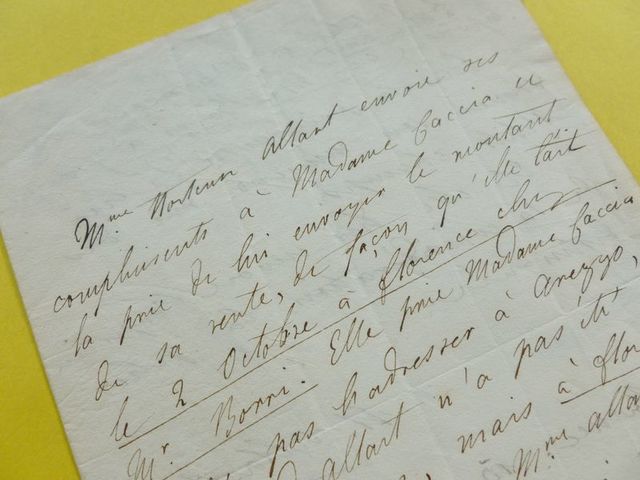 Mme Hortense Allart envoie ses
compliments à Madame Caccia et
la prie de lui envoyer le montant
de sa rente, de façon qu'elle l'ait
le 2 Octobre à florence chez
Mr. Borri. Elle prie Madame Caccia
pas l'adresser à arezzo,
allart n'a pas été
mais à flor
Mme alla